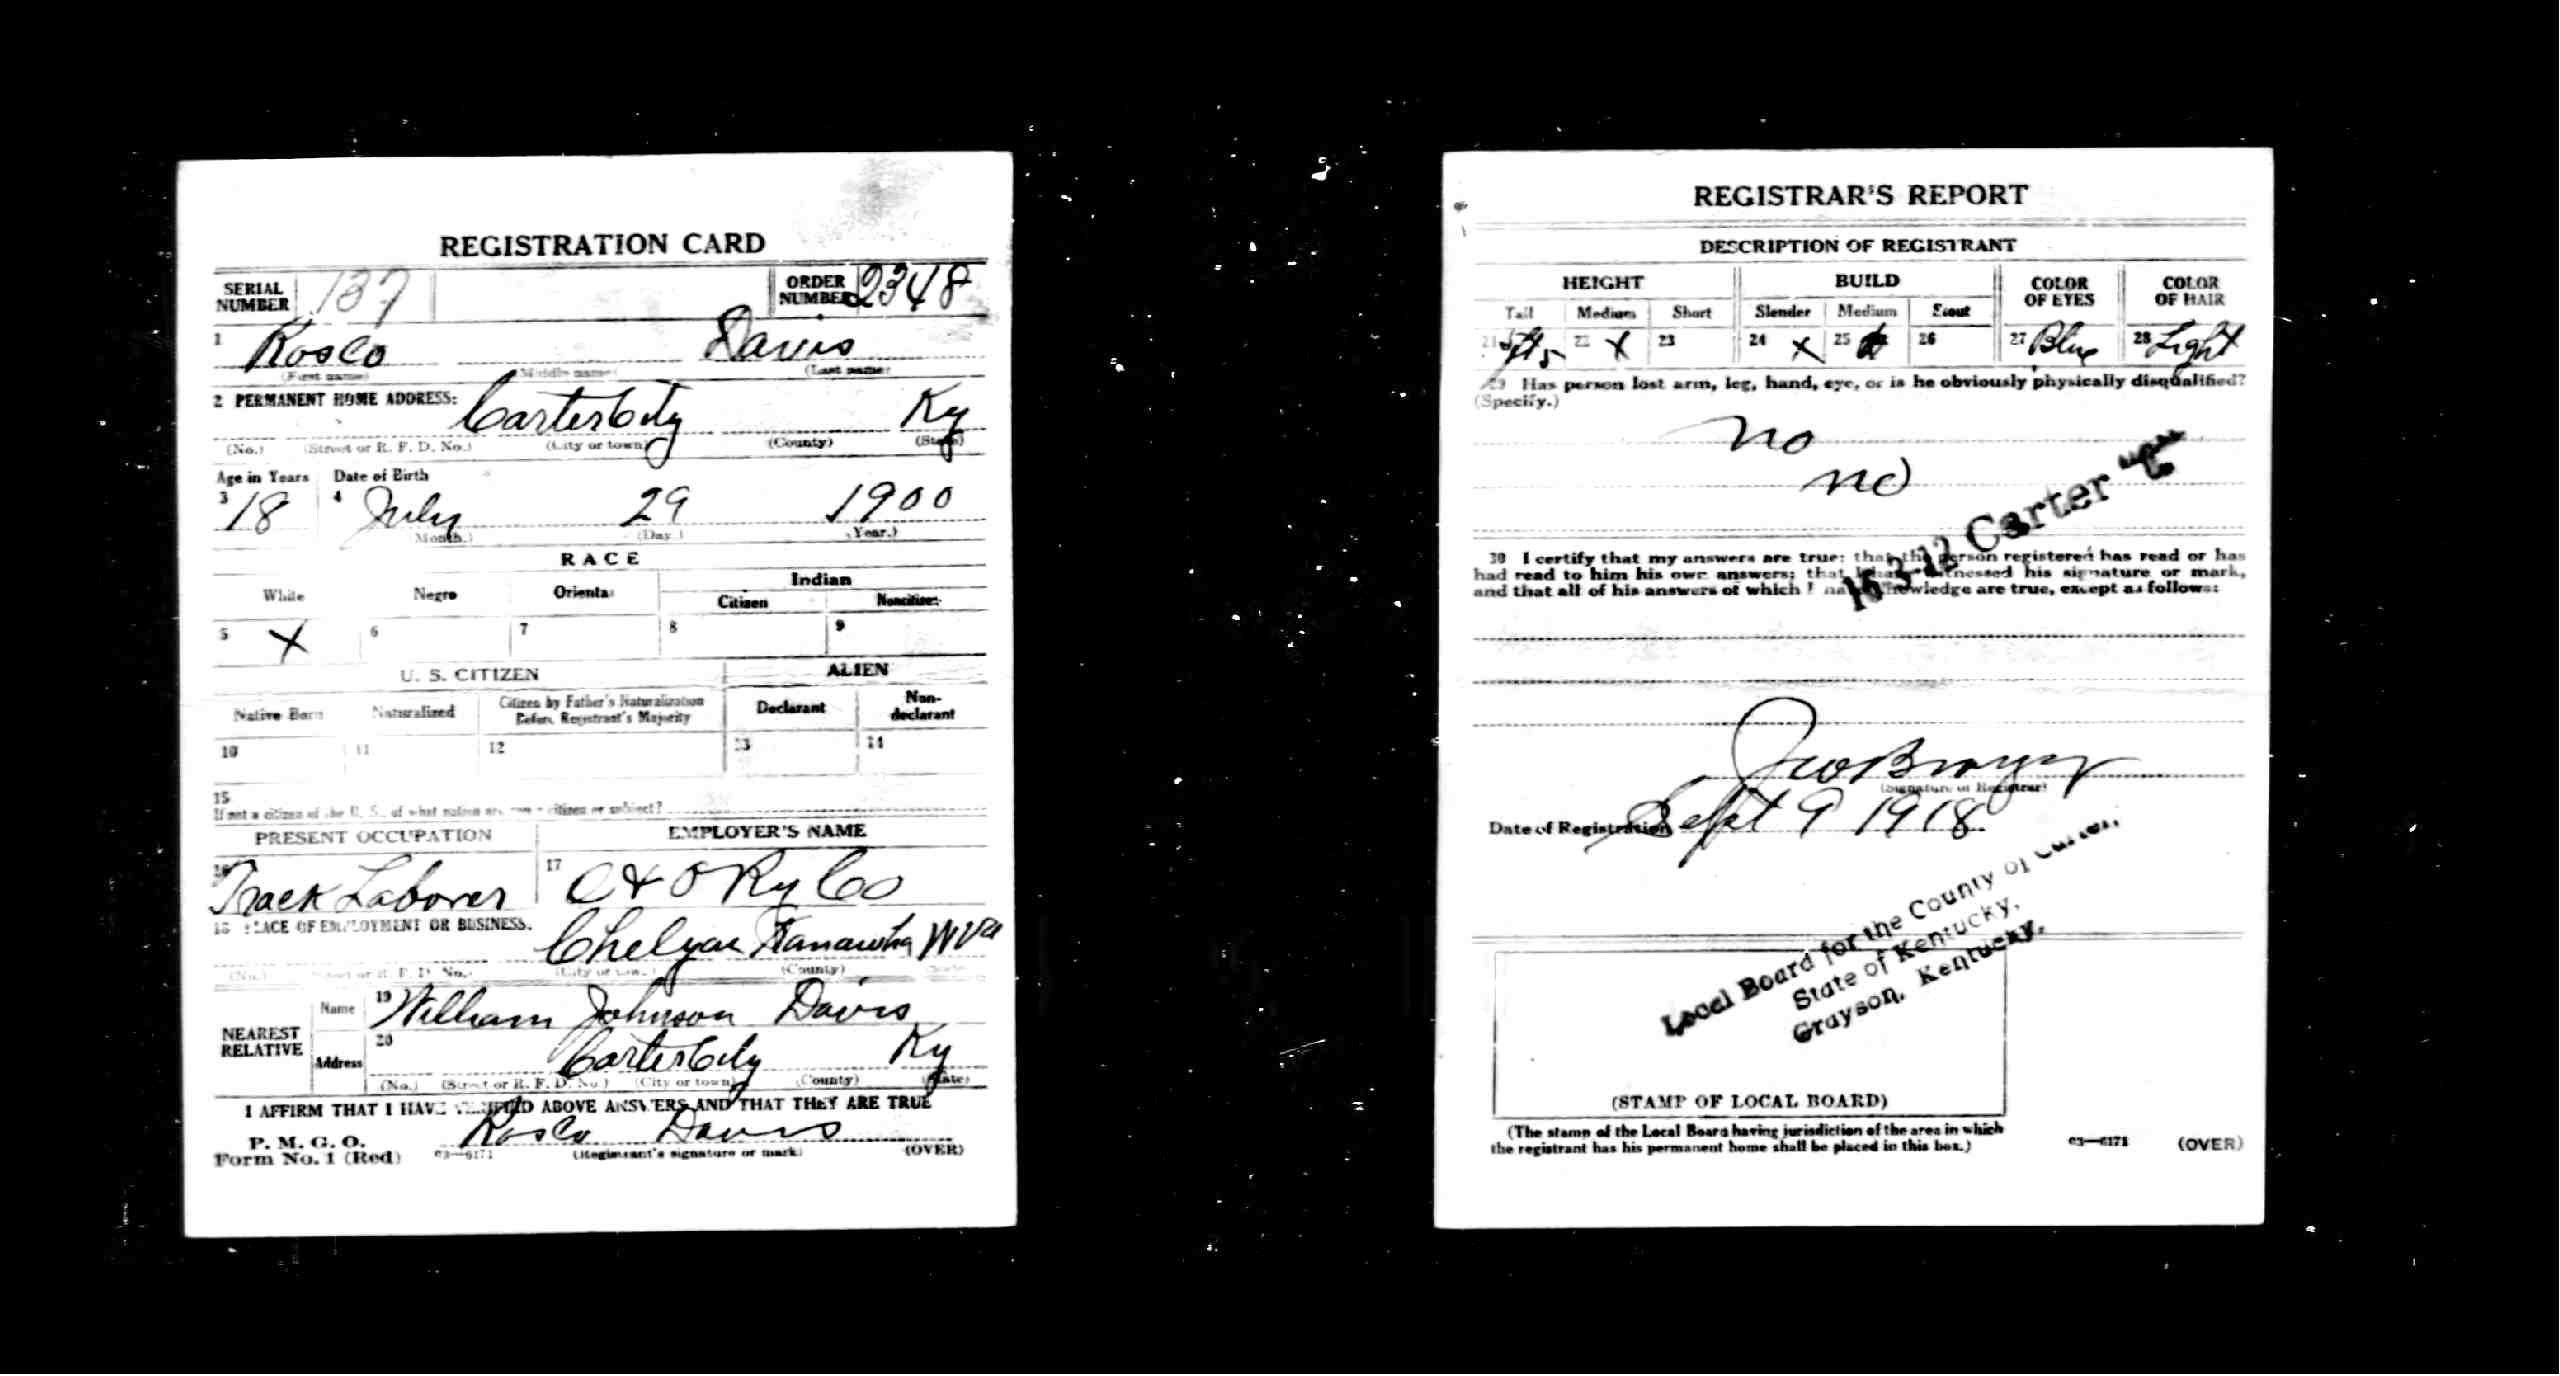 REGISTRATION CARD
SERIAL NUMBER 137 ORDER NUMBER 2348
1 Rosco Davis
(First name) (Middle name) (Last name)
2 PERMANENT HOME ADDRESS: Carter City Ky
(No.) (Street or R. F. D. No.) (City or town) (County) (State)
Age in Years Date of Birth
3 18 4 July 29 1900
(Month.) (Day.) (Year.)
RACE
White Negro Oriental Indian
Citizen Noncitizen
5 X 6 7 8 9
U. S. CITIZEN ALIEN
Native Born Naturalized Citizen by Father's Naturalization Before Registrant's Majority Declarant Non-declarant
10 11 12 13 14
15
If not a citizen of the U. S., of what nation are you a citizen or subject?
PRESENT OCCUPATION EMPLOYER'S NAME
16 Track Laborer 17 C & O Ry Co
18 PLACE OF EMPLOYMENT OR BUSINESS. Chelyan Kanawha W Va
(No.) (Street or R. F. D. No.) (City or town) (County) (State)
NEAREST RELATIVE Name 19 William Johnson Davis
Address 20 Carter City Ky
(No.) (Street or R. F. D. No.) (City or town) (County) (State)
I AFFIRM THAT I HAVE VERIFIED ABOVE ANSWERS AND THAT THEY ARE TRUE
P. M. G. O.
Form No. 1 (Red) 03—6171 Rosco Davis
(Registrant's signature or mark) (OVER)
REGISTRAR'S REPORT
DESCRIPTION OF REGISTRANT
HEIGHT BUILD COLOR OF EYES COLOR OF HAIR
Tall Medium Short Slender Medium Stout
21 22 X 23 24 X 25 26 27 Blue 28 Light
29 Has person lost arm, leg, hand, eye, or is he obviously physically disqualified?
(Specify.)
no
no
16-3-12 Carter "C"
30 I certify that my answers are true; that the person registered has read or has
had read to him his own answers; that I have witnessed his signature or mark,
and that all of his answers of which I have knowledge are true, except as follows:
(Signature of Registrar)
Date of Registration Sept 9 1918
Local Board for the County of Carter,
State of Kentucky,
Grayson, Kentucky.
(STAMP OF LOCAL BOARD)
(The stamp of the Local Board having jurisdiction of the area in which
the registrant has his permanent home shall be placed in this box.)
03—6171 (OVER)